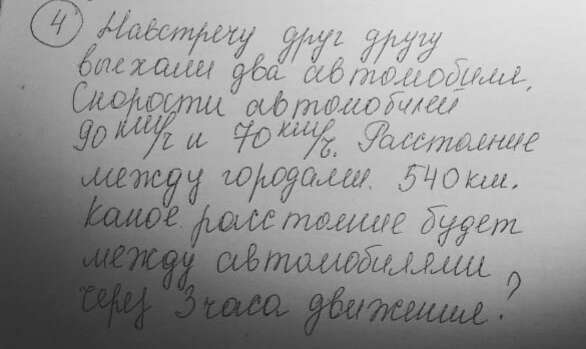 4 Навстречу друг другу
выехали два автомобиля.
Скорости автомобилей
90 км/ч и 70 км/ч. Расстояние
между городами 540 км.
Какое расстояние будет
между автомобилями
через 3 часа движения?